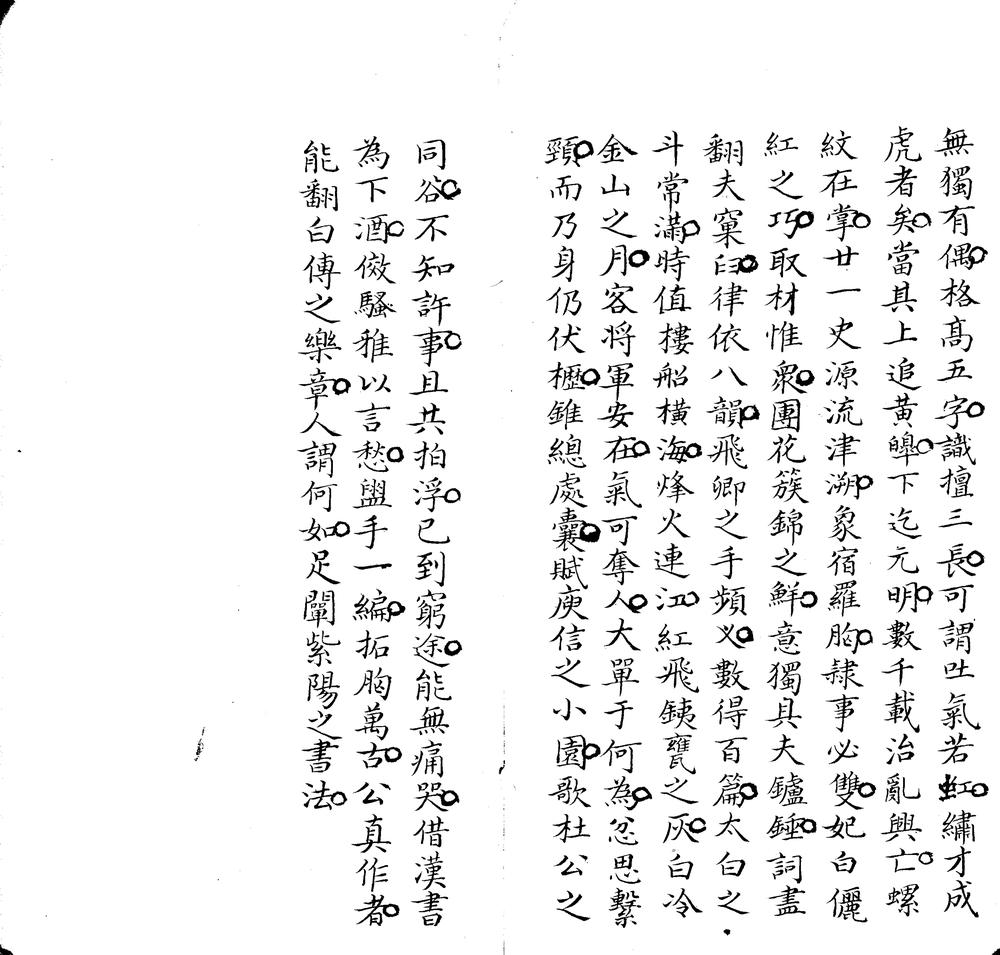 無獨有偶格高五字識擅三長可謂吐氣若虹繡才成
虎者矣當其上追黃皞下迄元明數千載治亂興亡螺
紋在掌廿一史源流津溯象宿羅胸隸事必雙妃白儷
紅之巧取材惟衆團花簇錦之鮮意獨具夫鑪錘詞盡
翻夫窠臼律依八韻飛卿之手頻乂數得百篇太白之
斗常滿時值樓船橫海烽火連江紅飛銕甕之灰白冷
金山之月客将軍安在氣可奪人大單于何為忿思繫
頸而乃身仍伏櫪錐總處囊賦庾信之小園歌杜公之
同谷不知許事且共拍浮已到窮途能無痛哭借漢書
為下酒傚騷雅以言愁盥手一編拓胸萬古公真作者
能翻白傅之樂章人謂何如足闡紫陽之書法